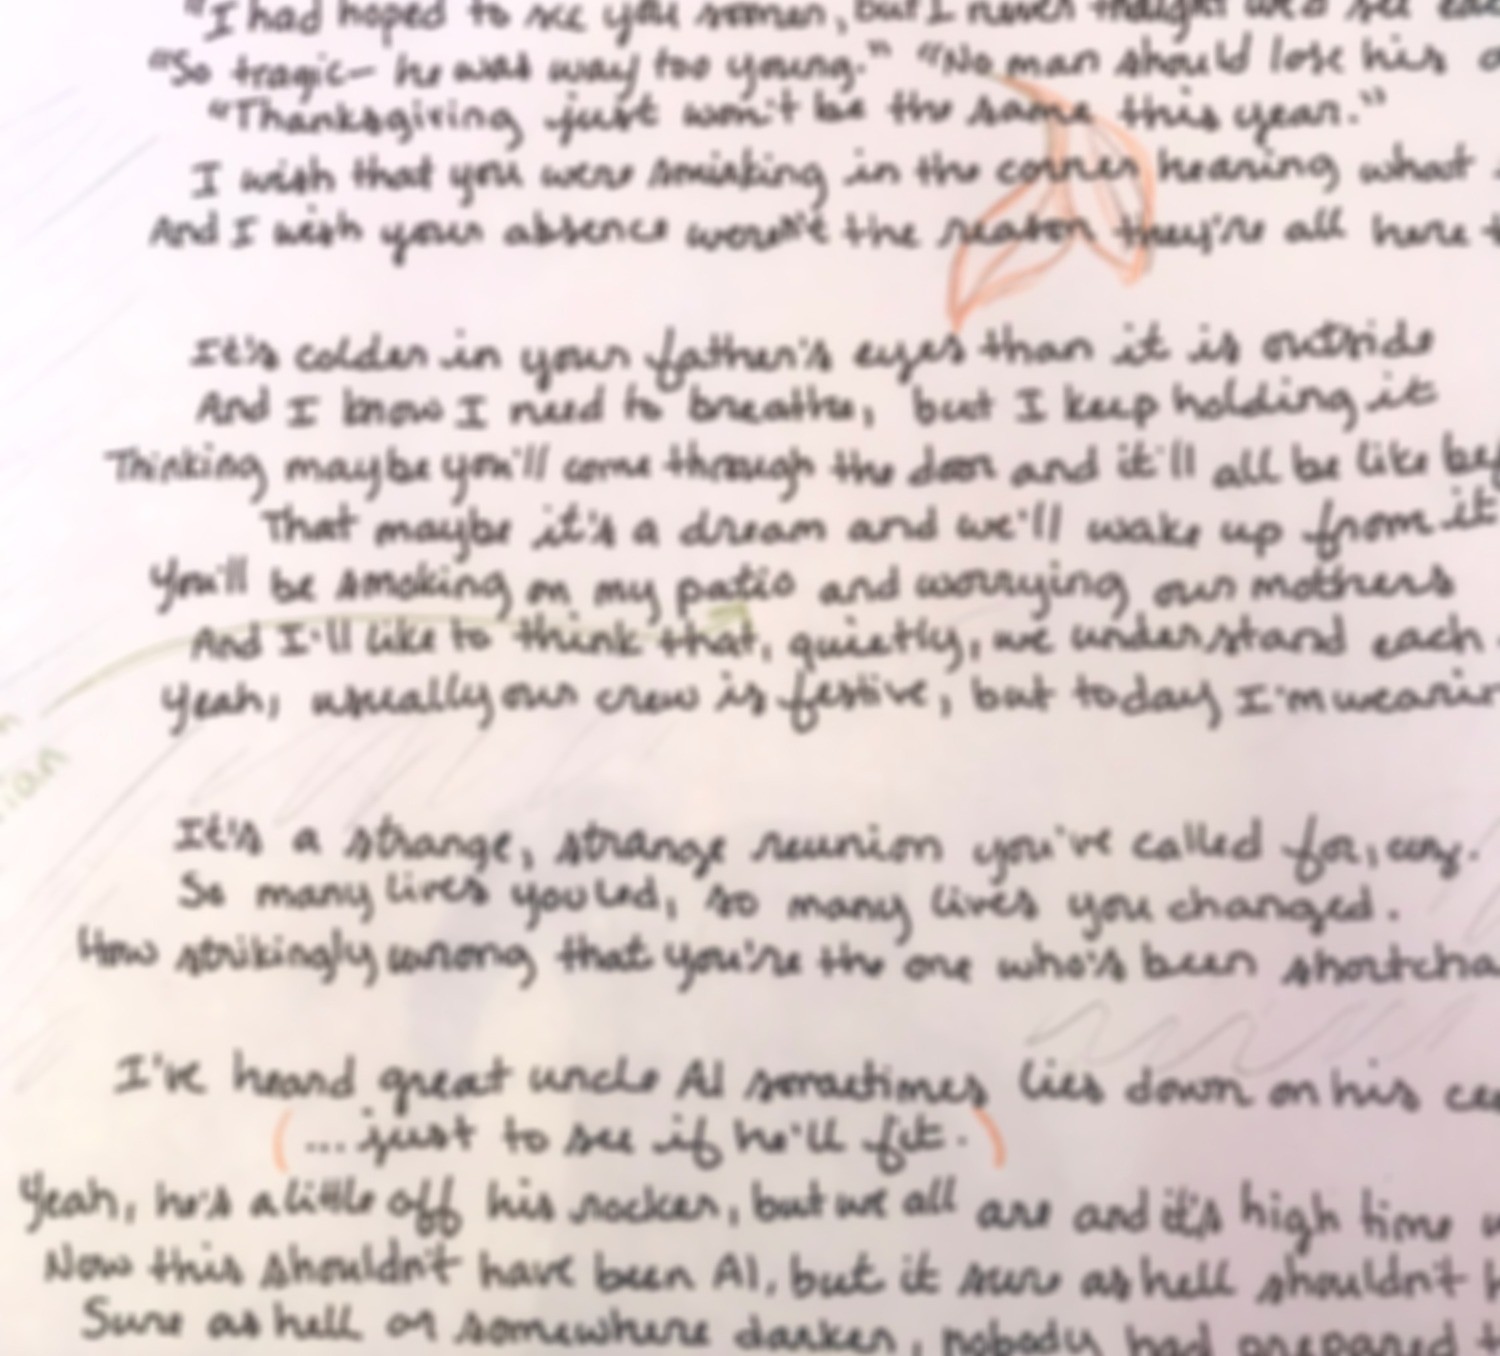 "I had hoped to see you sooner, but I never thought we'd see
"So tragic— he was way too young." "No man should lose his
"Thanksgiving just won't be the same this year."
I wish that you were smirking in the corner hearing what
And I wish your absence weren't the reason they're all here
It's colder in your father's eyes than it is outside
And I know I need to breathe, but I keep holding it
Thinking maybe you'll come through the door and it'll all be like
That maybe it's a dream and we'll wake up from it
You'll be smoking on my patio and worrying our mothers
And I'll like to think that, quietly, we understand each
Yeah, usually our crew is festive, but today I'm
It's a strange, strange reunion you've called for, cuz.
So many lives you led, so many lives you changed.
How strikingly wrong that you're the one who's been
I've heard great uncle Al sometimes lies down on his
(... just to see if he'll fit.)
Yeah, he's a little off his rocker, but we all are and it's high time
Now this shouldn't have been Al, but it sure as hell shouldn't
Sure as hell or somewhere darker, nobody had prepared